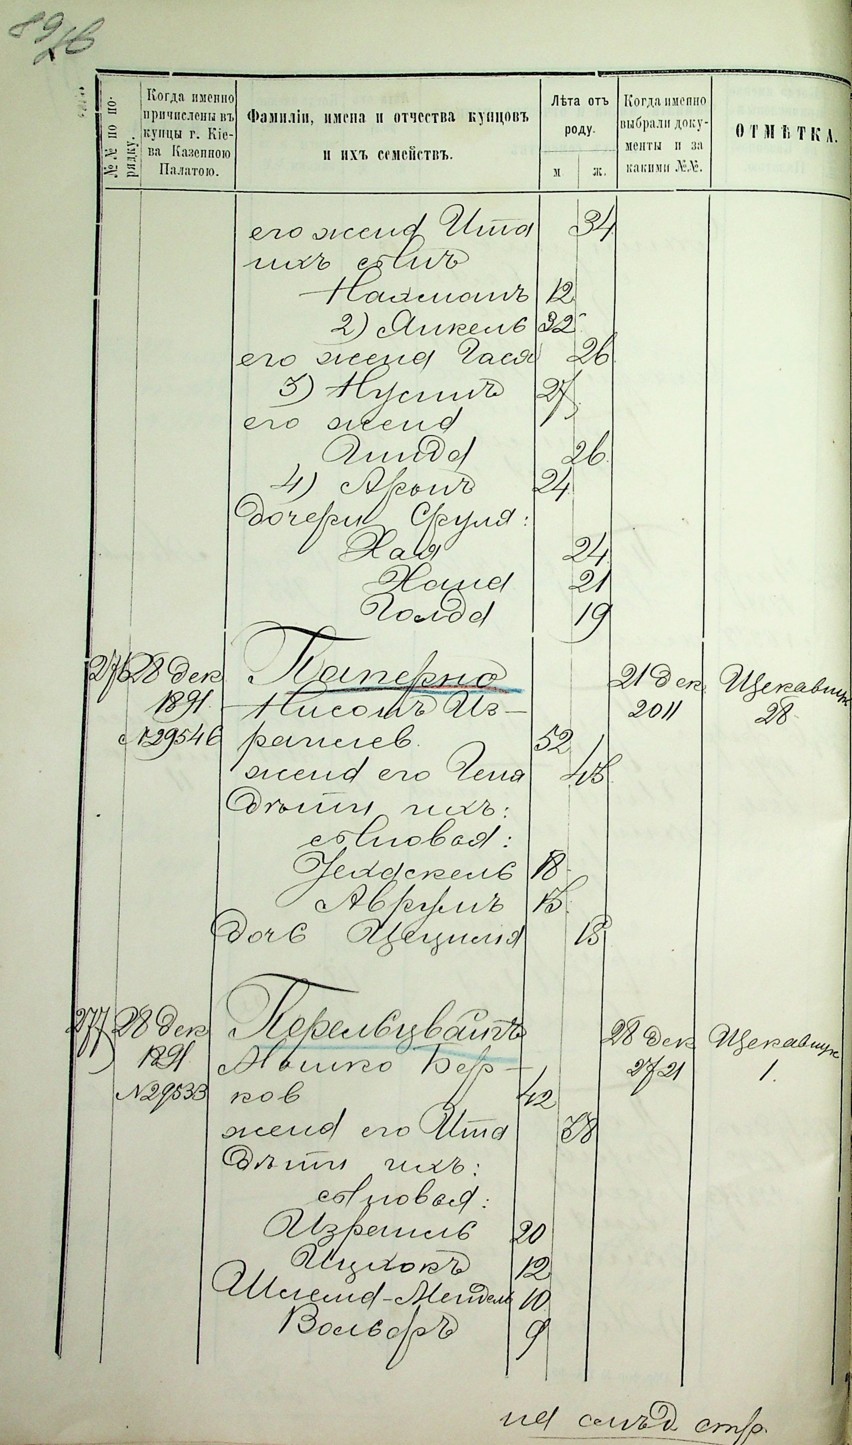 №№ по по-
рядку.
Когда именно
причислены въ
купцы г. Кіе-
ва Казенною
Палатою.
Фамиліи, имена и отчества купцовъ
и ихъ семействъ.
Лѣта отъ
роду.
м
ж.
Когда именно
выбрали доку-
менты и за
какими №№.
ОТМѢТКА.
его жена Ита 34
ихъ сынъ
Нахманъ 12
2) Янкель 32
его жена Гася 26
3) Нусинъ 27
его жена
Гинда 26
4) Аронъ 24
дочери Сруля:
Хая 24
Хана 21
Голда 19
276 28 дек Паперно 21 дек. Щекавицк
1891 Нисонъ Из- 2011 28
№29546 раилев. 52
жена его Геня 45
дѣти ихъ:
сыновья:
Хехаскель 18
Аврумъ 15
дочь Цецилія 15
277 28 дек Перельцвайгъ 28 дек Щекавицк
1891 Мошко Бер- 2721 1.
№29533 ков 42
жена его Ита 38
дѣти ихъ:
сыновья:
Израиль 20
Ицхокъ 12
Шлема-Мендель 10
Вольфъ 9
на слѣд. стр.